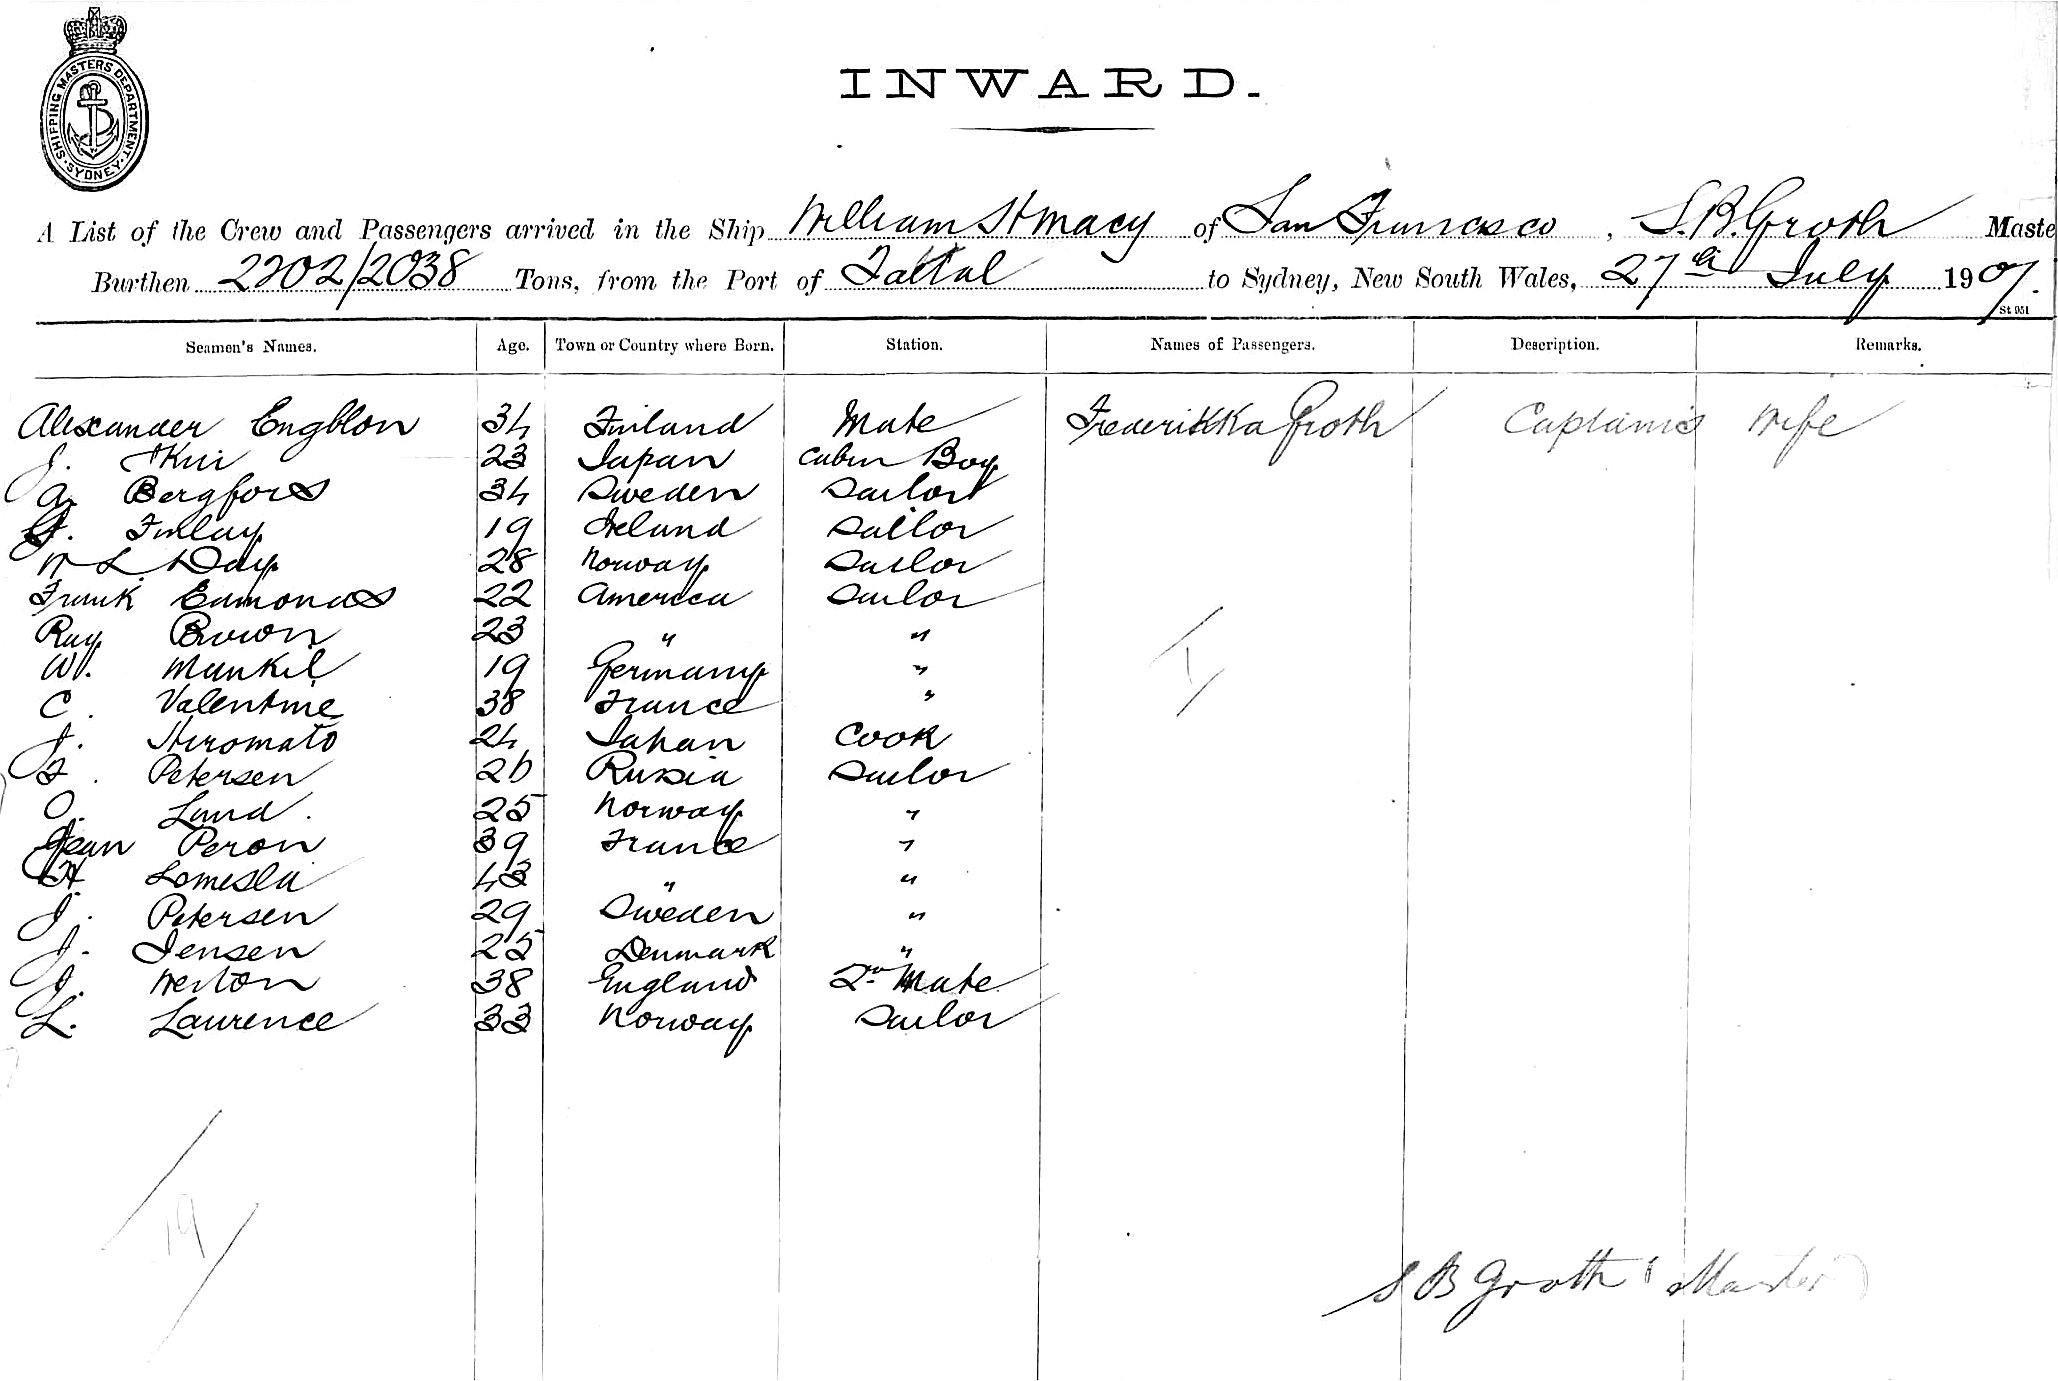 SHIPPING MASTERS DEPARTMENT · SYDNEY ·
INWARD.
A List of the Crew and Passengers arrived in the Ship William H Macy of San Francisco, S. B. Groth Maste
Burthen 2202/2038 Tons, from the Port of Taltal to Sydney, New South Wales, 27th July 1907.
St 951
Seamen's Names. Age. Town or Country where Born. Station. Names of Passengers. Description. Remarks.
Alexander Engblon 34 Finland Mate Frederikka Groth Captain's Wife
J. Ikui 23 Japan Cabin Boy
A. Bergfors 34 Sweden Sailor
Finlay 19 Ireland Sailor
W L Day 28 Norway Sailor
Frank Edmonds 22 America Sailor
Ray Brown 23 " "
W. Munkil 19 Germany "
C. Valentine 38 France "
J. Hiromato 24 Japan Cook
Petersen 26 Russia Sailor
O. Lund. 25 Norway "
Jean Peron 39 France "
H. Lomesla 43 " "
J. Petersen 29 Sweden "
J. Jensen 25 Denmark "
J. Weston 38 England 2nd Mate
L. Laurence 33 Norway Sailor
1
19
S B Groth (Master)